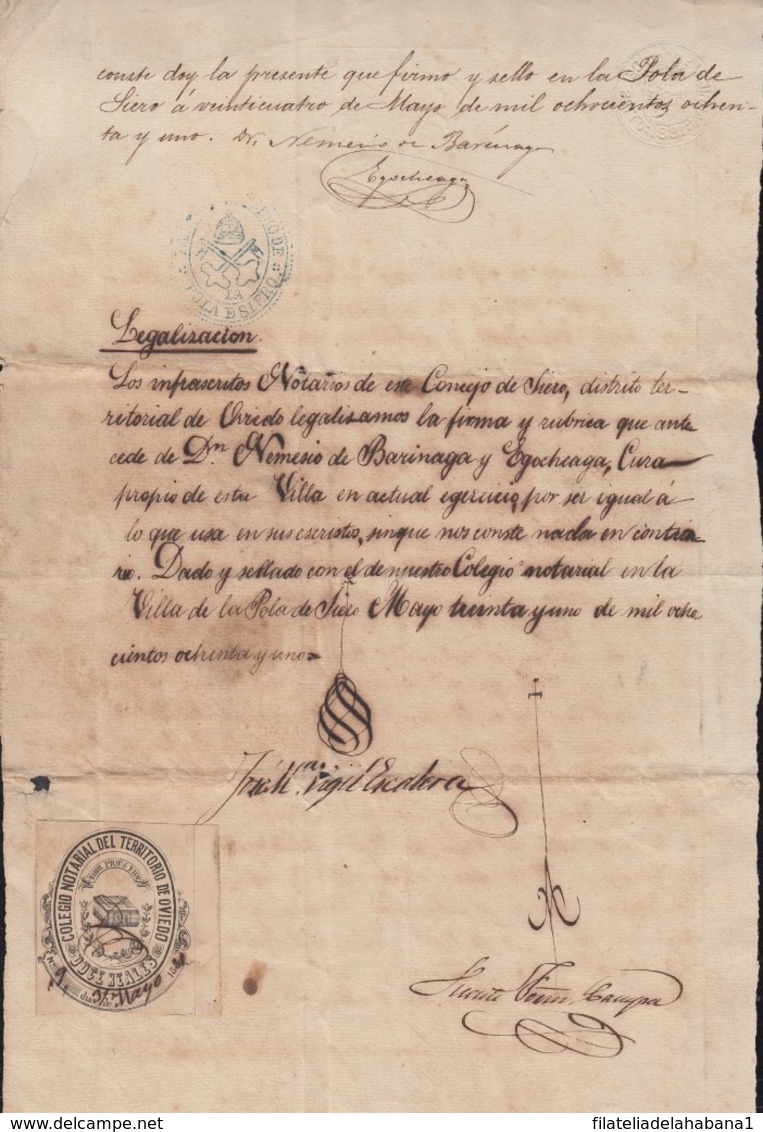 conste doy la presente que firmo y sello en la Pola de
Siero á veinticuatro de Mayo de mil ochocientos ochen-
ta y uno. Dr. Nemesio de Barinaga
Egocheaga
DE
LA
POLA D SIERO
Legalizacion.
Los infrascritos Notarios de este Concejo de Siero, distrito ter-
ritorial de Oviedo legalizamos la firma y rubrica que ante
cede de Dn Nemesio de Barinaga y Egocheaga, Cura
propio de esta Villa en actual egercicio, por ser igual á
lo que usa en sus escritos, sin que nos conste nada en contra
rio. Dado y sellado con el de nuestro Colegio notarial en la
Villa de la Pola de Siero Mayo treinta y uno de mil ocho
cientos ochenta y uno=
José Ma. Vigil Escalera
COLEGIO NOTARIAL DEL TERRITORIO DE OVIEDO
NIHIL PRIUS FIDE
DOCE REALES
31 Mayo
Campa
filateliadelahabana1